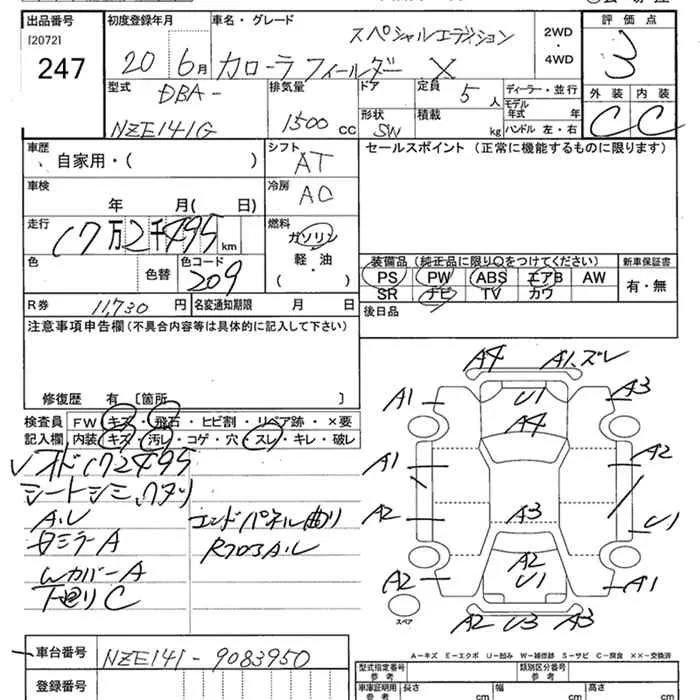 出品番号 初度登録年月 車名・グレード 評価点
[2072]
247
20 6月 カローラフィールダー X
スペシャルエディション
2WD
・
4WD
3
型式 排気量 ドア 定員 ディーラー・並行 外装 内装
DBA-
NZE141G
1500 CC
5 人
モデル年式 年
形状 積載 kg ハンドル 左・右
SW
C C
車歴 シフト セールスポイント (正常に機能するものに限ります)
自家用・( )
AT
車検 冷房
年 月( 日)
AC
走行 燃料
17万2千495 km
ガソリン
軽油
( )
色 色替 色コード
209
装備品 (純正品に限り○をつけてください) 新車保証書
PS PW ABS エアB AW
SR ナビ TV カワ
有・無
R券 11,730 円 名変通知期限 月 日
後日品
注意事項申告欄 (不具合内容等は具体的に記入して下さい)
修復歴 有 [箇所 ]
検査員記入欄
FW キズ・飛石・ヒビ割・リペア跡・×要
内装 キズ・汚レ・コゲ・穴・スレ・キレ・破レ
オド172495
シートシミ、ワタリ
A.U
エンドパネル曲り
ミラーA
Rフロア A.U
カバーA
下回りC
A4 A1、ズレ
A1 U1 A3
A4
A1 A2
A2 A3 U1
A2
A2 U1 A1
スペア
A2 U3 A3
A…キズ E…エクボ U…凹み W…補修跡 S…サビ C…腐食 XX…交換済
車台番号 NZE141-9083950
登録番号
型式指定番号 参考 類別区分番号 参考
車庫証明用 参考 長さ cm 幅 cm 高さ cm